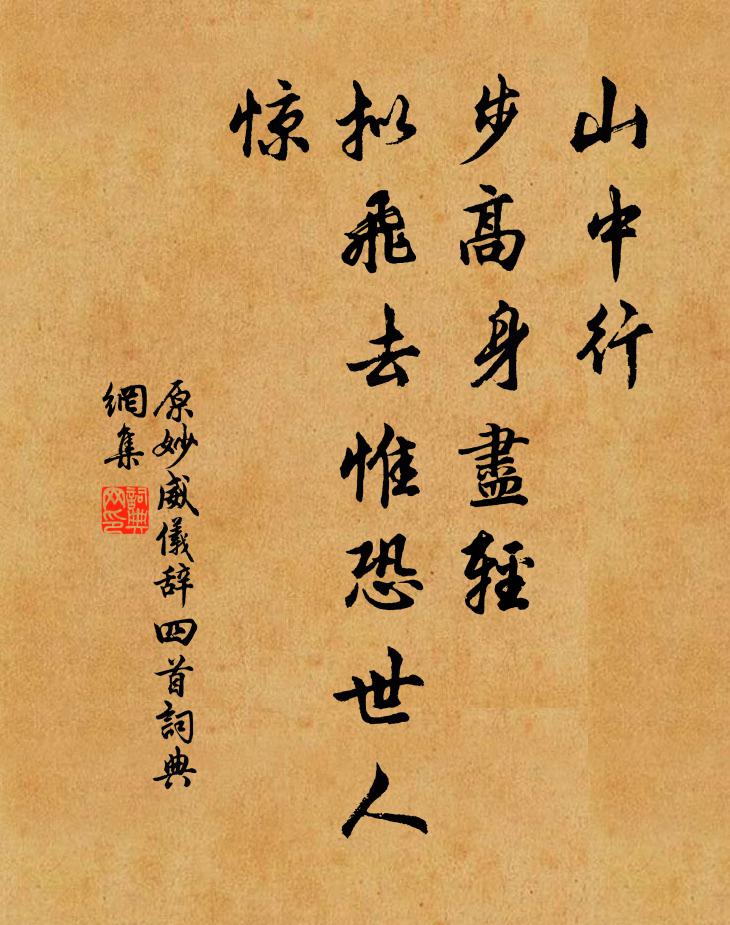 山中行
步高身盡輕
拟飛去惟恐世人
惊
原妙威儀辞四首詞典
網集
詞典
网印